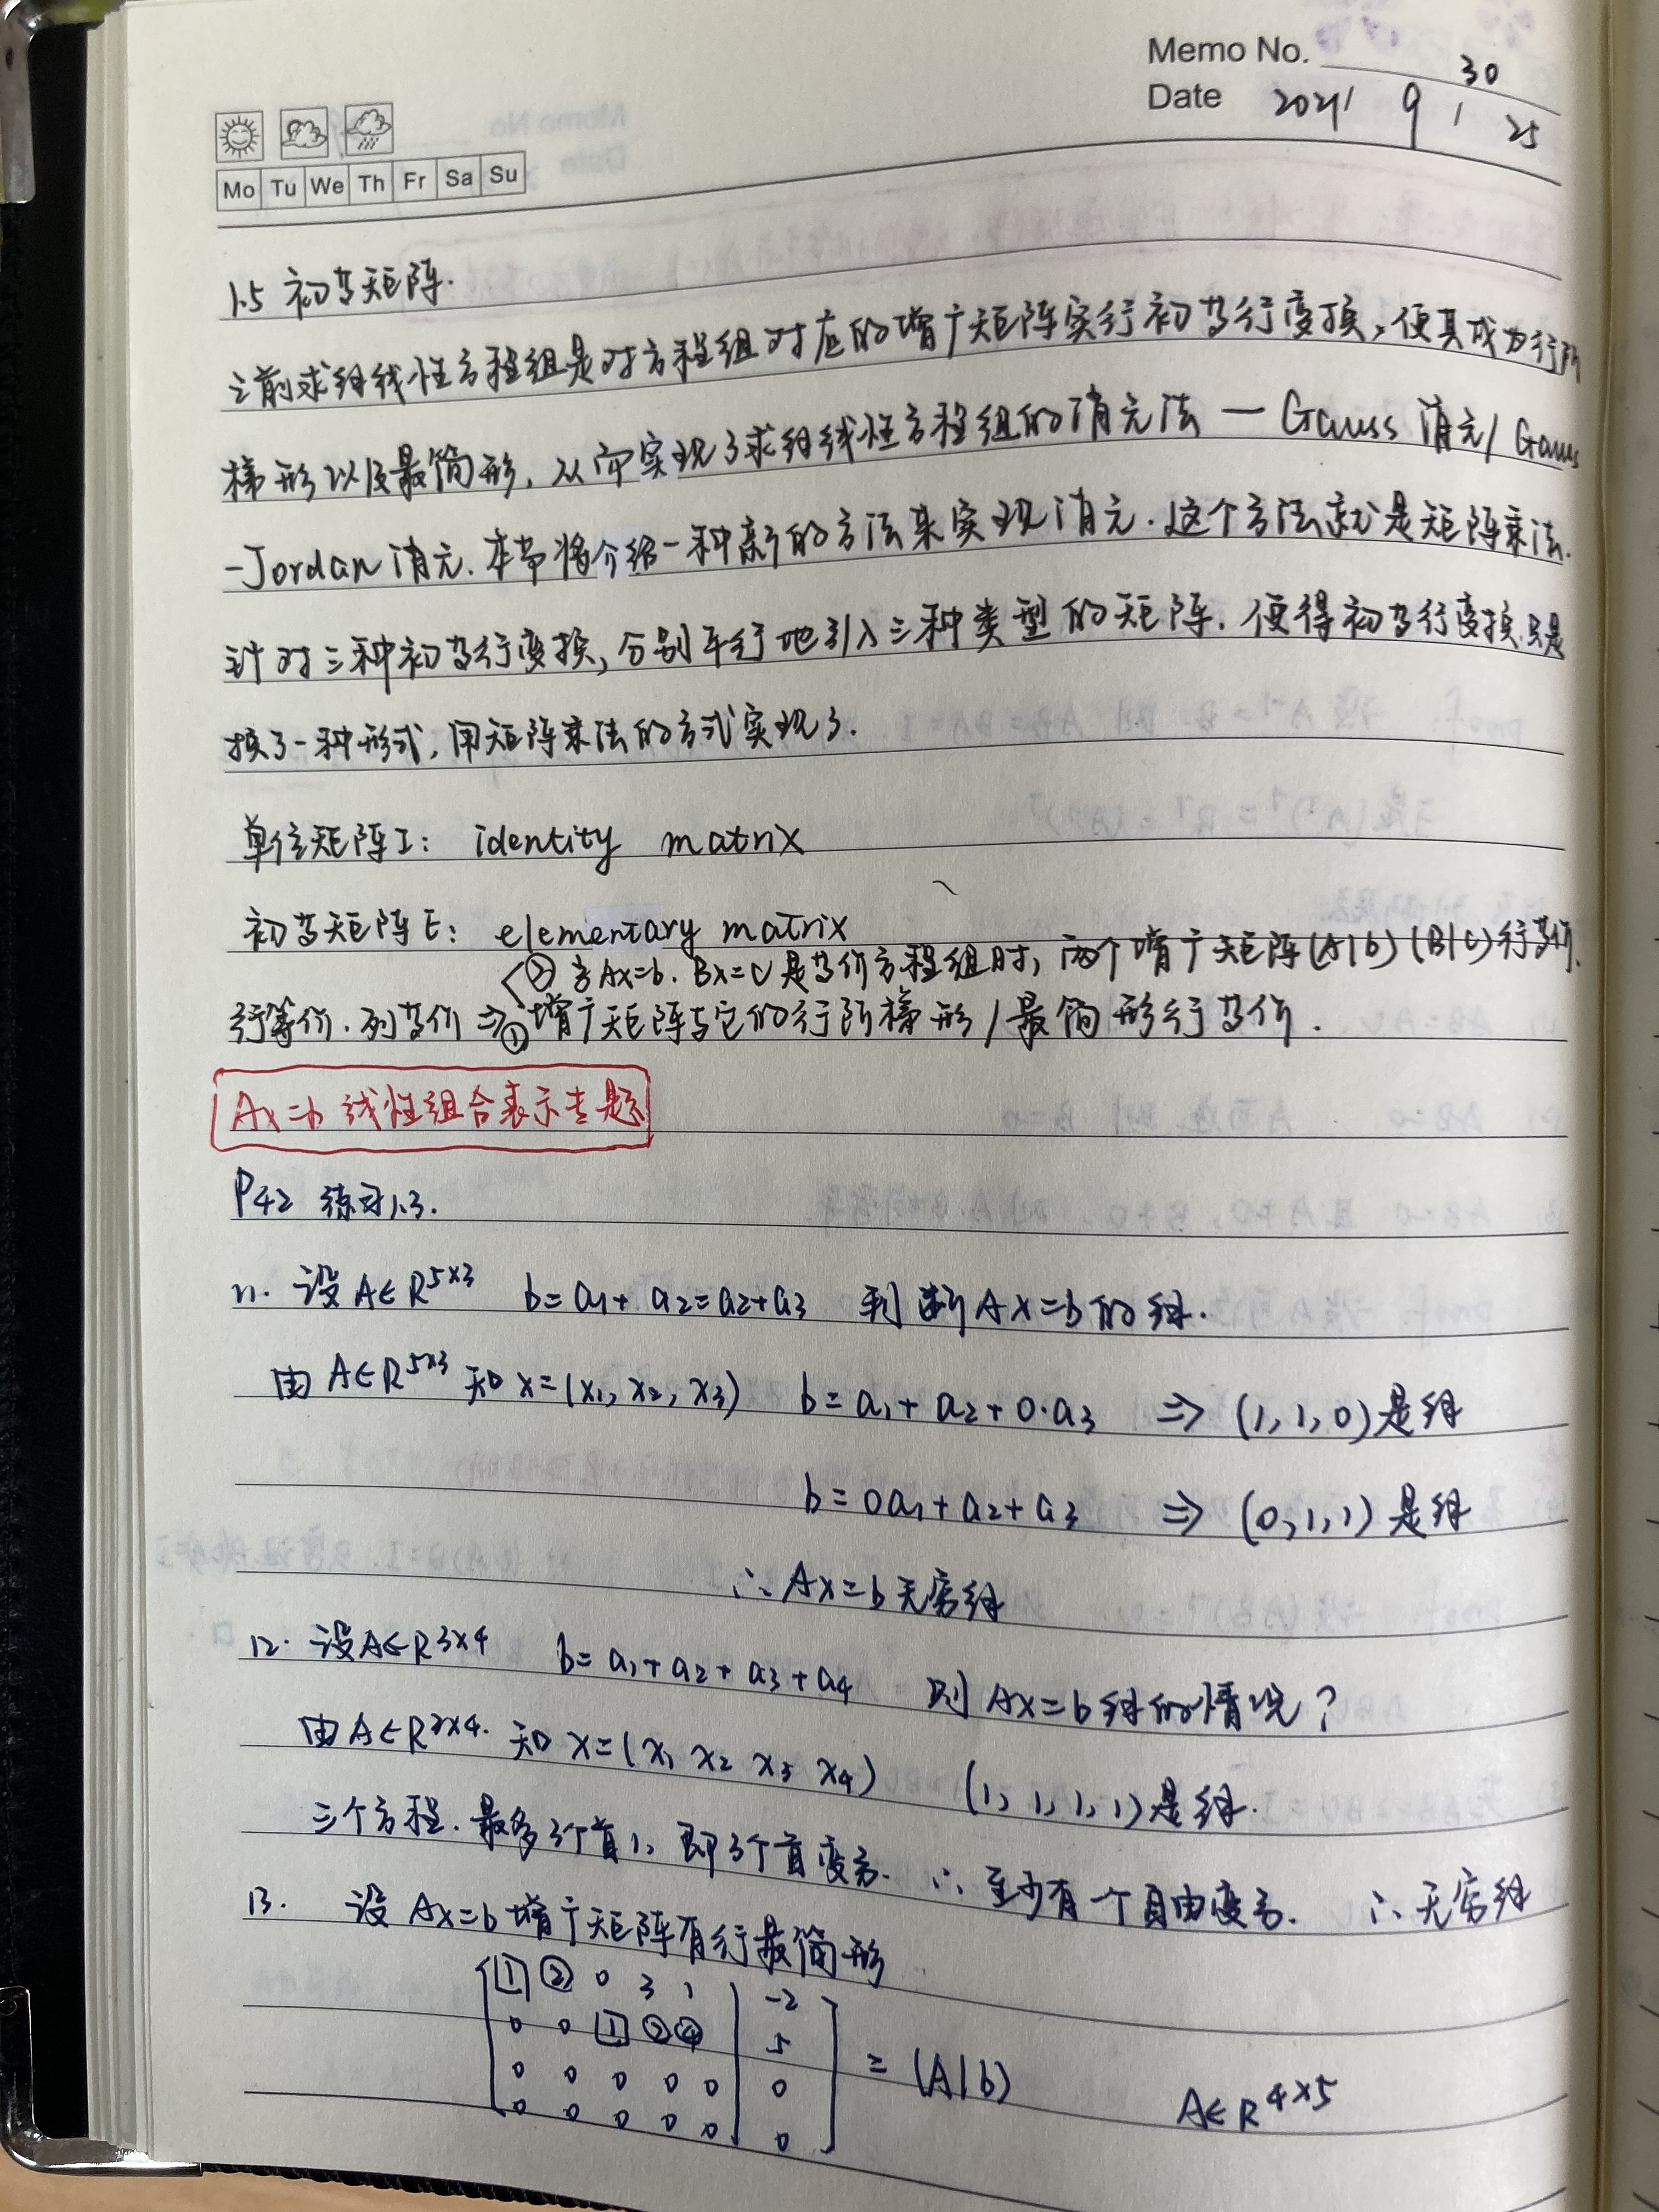 Memo No. 30
Date 2021 / 9 / 25
Mo Tu We Th Fr Sa Su
1.5 初等矩阵.
之前求解线性方程组是对方程组对应的增广矩阵实行初等行变换,使其成为行阶
梯形以及最简形,从而实现了求解线性方程组的消元法 — Gauss 消元/ Gauss
-Jordan 消元.本节将介绍一种新的方法来实现消元.这个方法就是矩阵乘法.
针对三种初等行变换,分别平行地引入三种类型的矩阵.使得初等行变换只是
换了一种形式,用矩阵乘法的方式实现了.
单位矩阵I: identity matrix
初等矩阵E: elementary matrix
② 若Ax=b. Bx=c是等价方程组时,两个增广矩阵(A|b) (B|c)行等价.
行等价.列等价 ⇒ ① 增广矩阵与它的行阶梯形/最简形行等价.
Ax=b 线性组合表示专题
P42 练习1.3.
11. 设A∈R^{5×3} b=a₁+a₂=a₂+a₃ 判断Ax=b的解.
由A∈R^{5×3} 知 x=(x₁, x₂, x₃) b=a₁+a₂+0·a₃ ⇒ (1,1,0)是解
b=0a₁+a₂+a₃ ⇒ (0,1,1)是解
∴ Ax=b无穷解
12. 设A∈R^{3×4} b=a₁+a₂+a₃+a₄ 则Ax=b解的情况?
由A∈R^{3×4}. 知 x=(x₁ x₂ x₃ x₄) (1,1,1,1)是解.
三个方程.最多3个首1,即3个首变元. ∴至少有一个自由变元. ∴无穷解
13. 设Ax=b增广矩阵有行最简形
1 ② 0 3 1 | -2
0 0 1 ② ④ | 5
0 0 0 0 0 | 0 = (A|b) A∈R^{4×5}
0 0 0 0 0 | 0